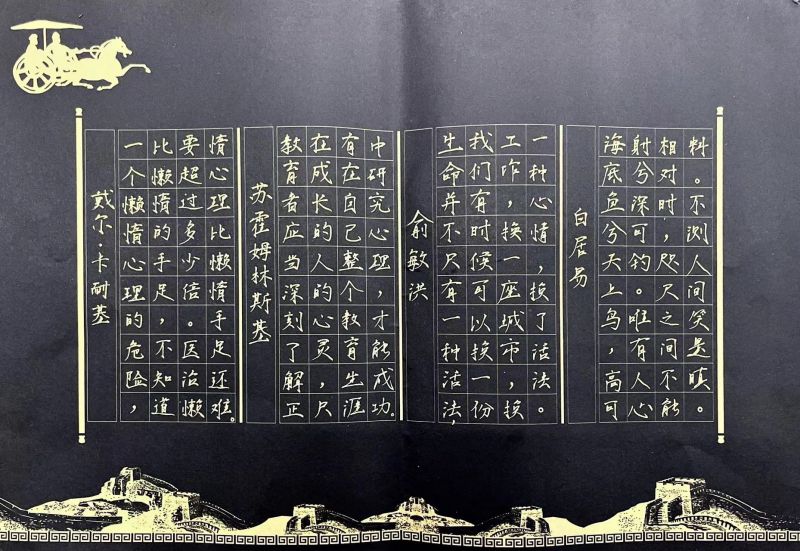 戴尔·卡耐基
一个懒惰心理的危险，
比懒惰的手足，不知道
要超过多少倍。医治懒
惰心理比懒惰手足还难。
苏霍姆林斯基
教育者应当深刻了解正
在成长的人的心灵，只
有在自己整个教育生涯
中研究心理，才能成功。
俞敏洪
生命并不只有一种活法，
我们有时候可以换一份
工作，换一座城市，换
一种心情，换了活法。
白居易
海底鱼兮天上鸟，高可
射兮深可钓。唯有人心
相对时，咫尺之间不能
料。不测人间笑是瞋。